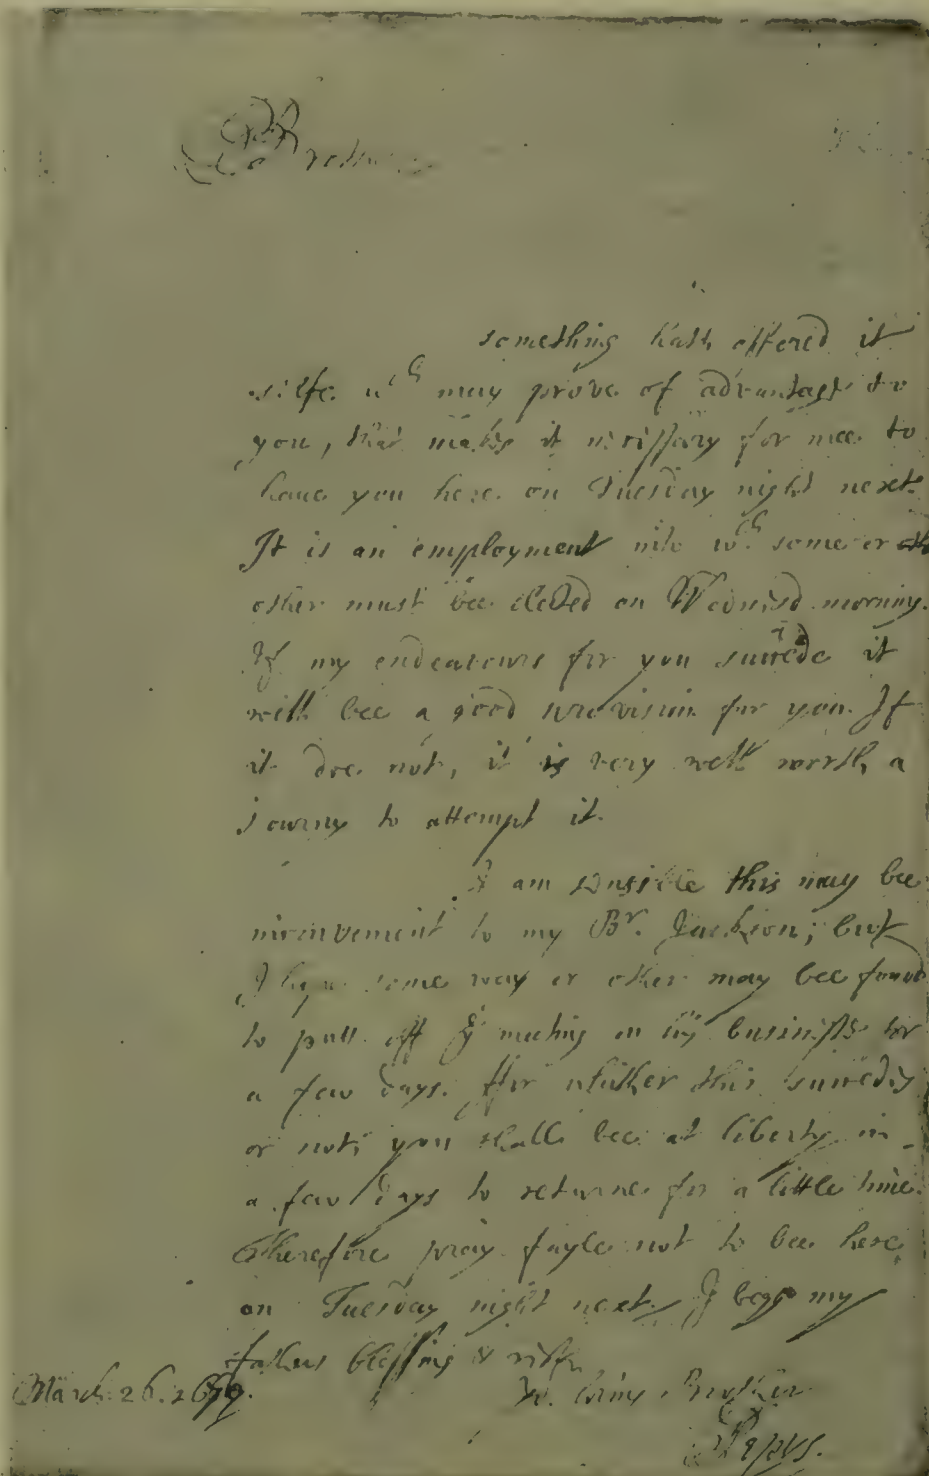 Brother
something hath offered it
selfe wch may prove of advantage to
you, that makes it necessary for mee to
haue you here on Tuesday night next.
It is an employment into wch some or
other must bee elected on Wednesd. morning.
If my endeauours for you succede it
will bee a good provision for you. If
it doe not, it is very well worth a
iourny to attempt it.
I am sensible this may bee
inconvenient to my Br. Jackson; but
I hope some way or other may bee found
to putt off ye meeting on his business for
a few days. For whither this succedes
or not, you shall bee at liberty in
a few days to returne for a little time.
Therefore pray fayle not to bee here
on Tuesday night next. I begg my
fathers blessing & rest
Yr. loving Brother
SPepys.
March. 26. 1659.